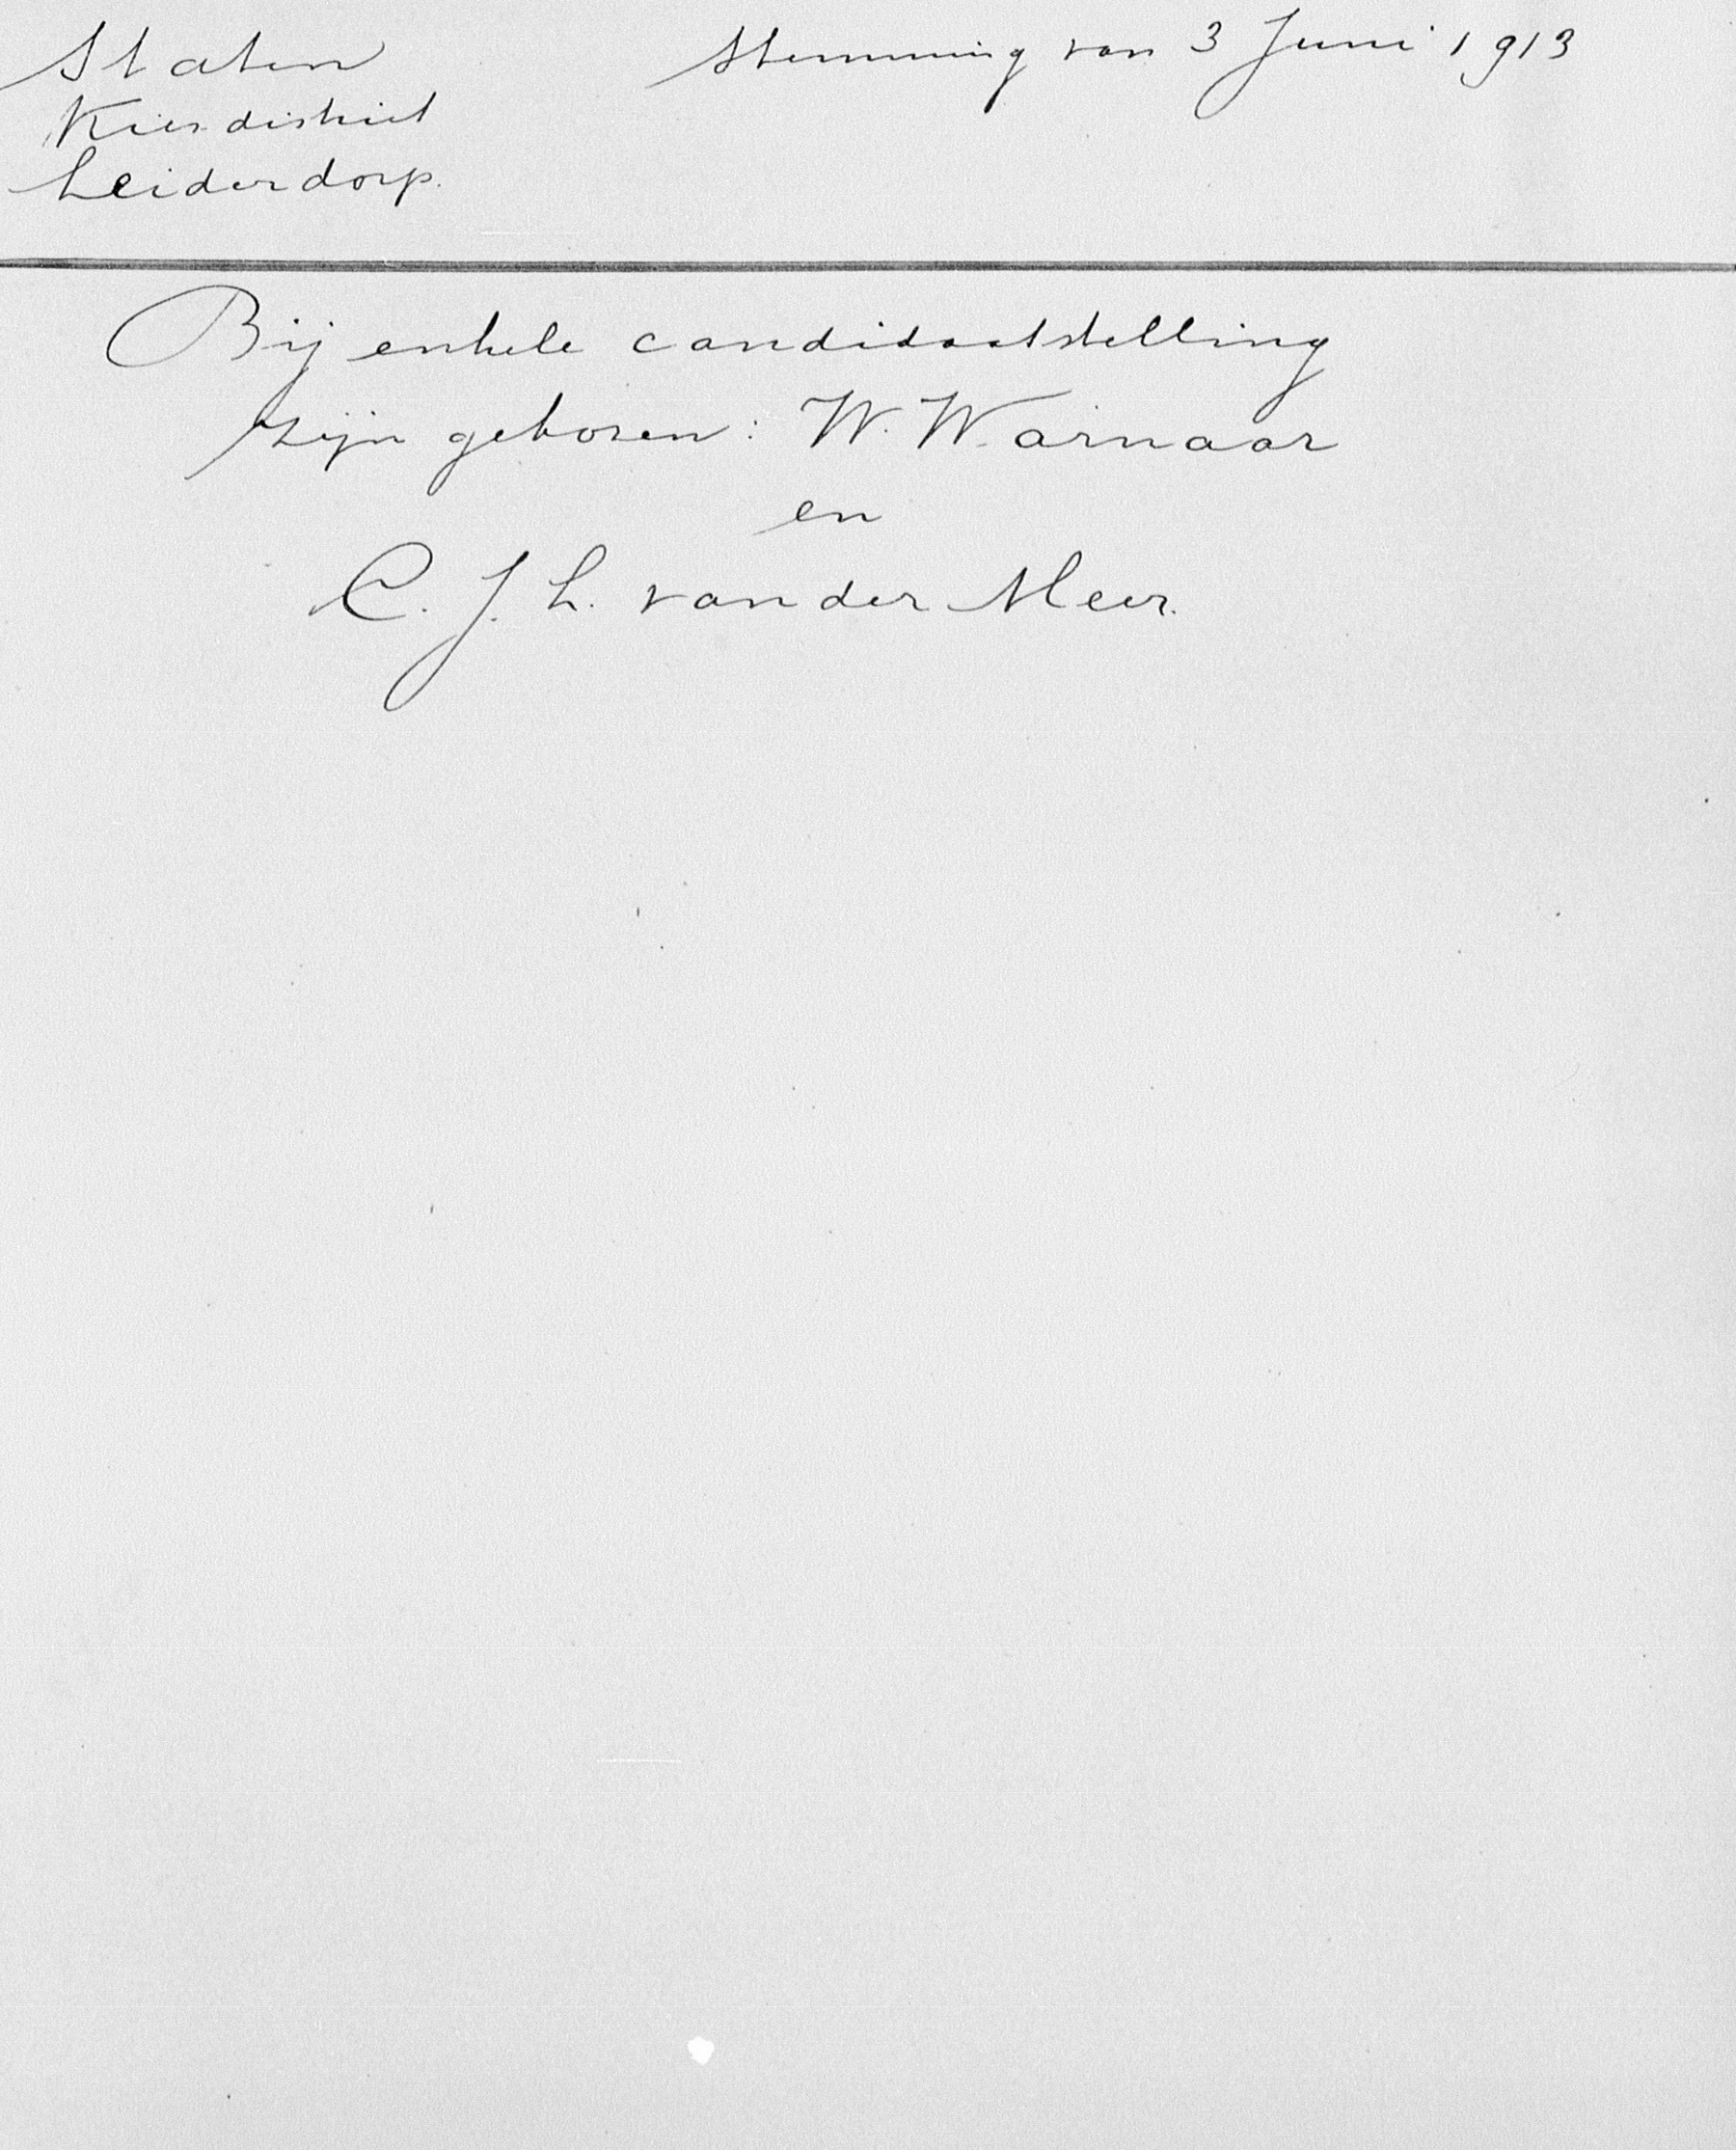 Staten
Stemming van 3 Juni 1913
Kiesdistrict
Leiderdorp.
Bij enkele candidaatstelling
zijn gekozen: W. Warnaar
en
C. J. L. van der Meer.